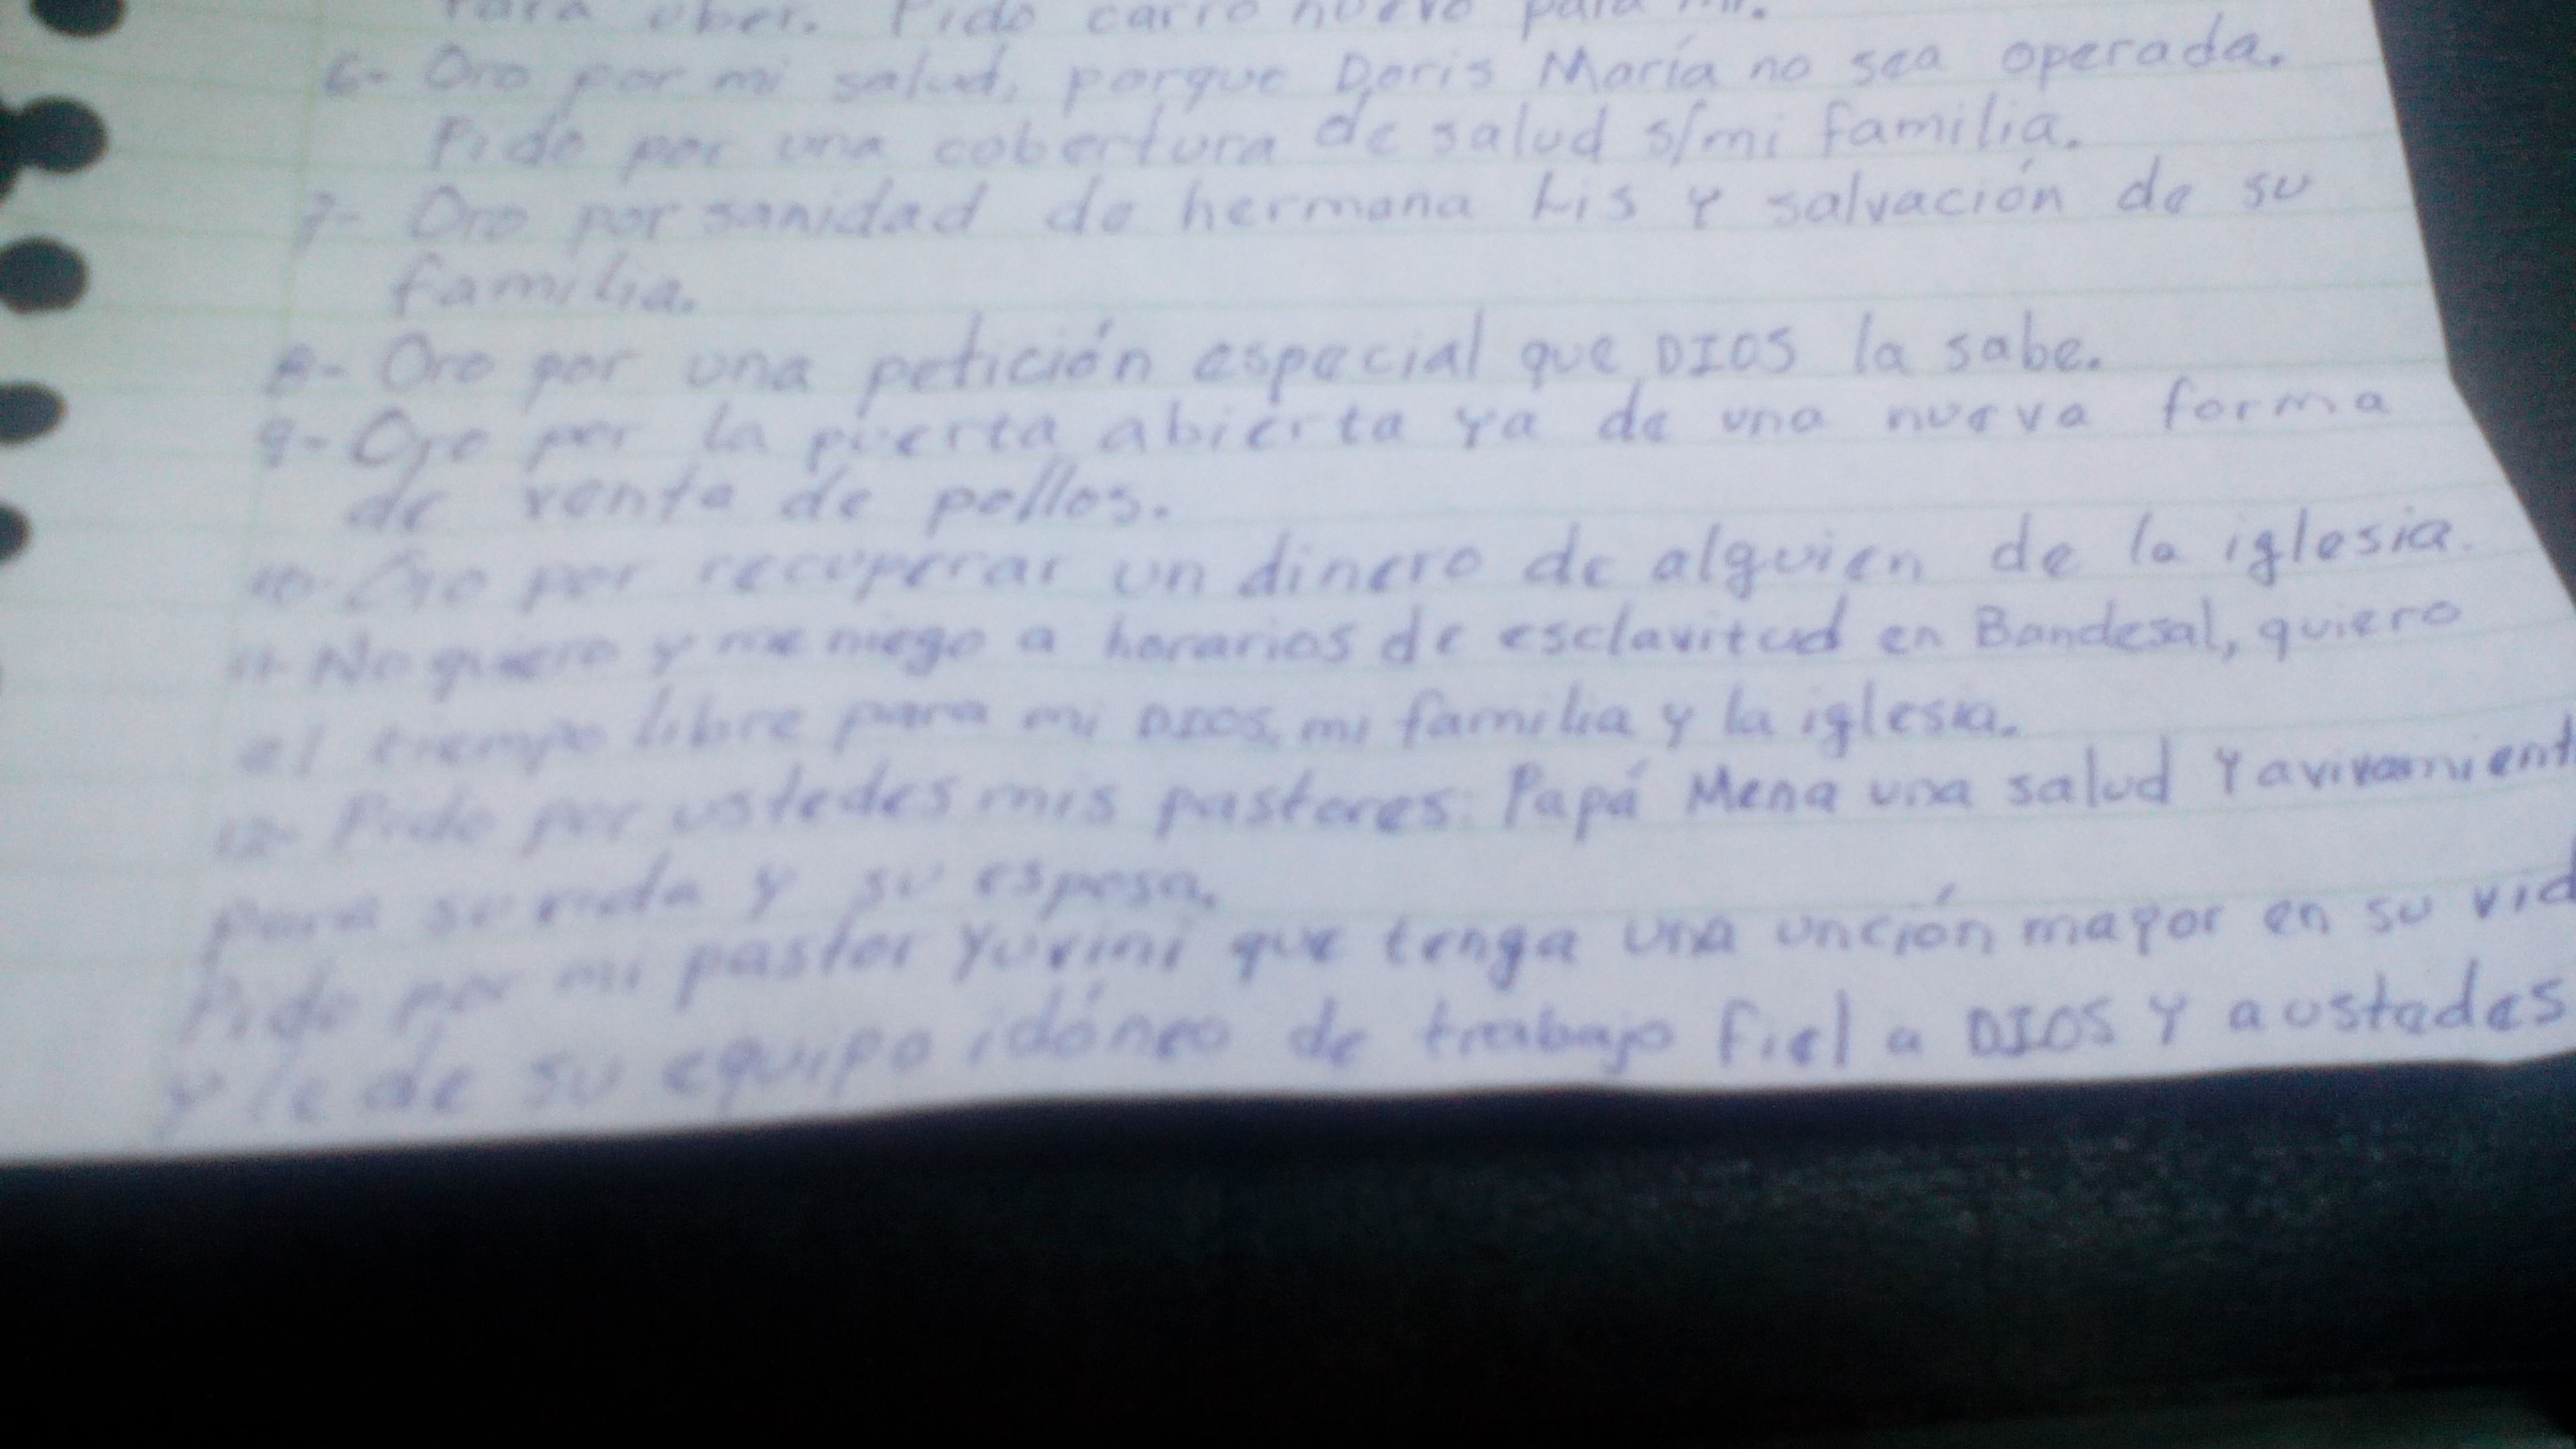 Para uber. Pido carro nuevo para mi.
6- Oro por mi salud, porque Doris María no sea operada.
Pido por una cobertura de salud s/mi familia.
7- Oro por sanidad de hermana Lis y salvación de su
familia.
8- Oro por una petición especial que DIOS la sabe.
9- Oro por la puerta abierta ya de una nueva forma
de venta de pollos.
10- Oro por recuperar un dinero de alguien de la iglesia.
11- No quiero y me niego a horarios de esclavitud en Bandesal, quiero
el tiempo libre para mi DIOS, mi familia y la iglesia.
12- Pido por ustedes mis pastores: Papá Mena una salud y avivamient
para su vida y su esposa.
Pido por mi pastor Yurini que tenga una unción mayor en su vid
y le de su equipo idóneo de trabajo fiel a DIOS y a ustedes